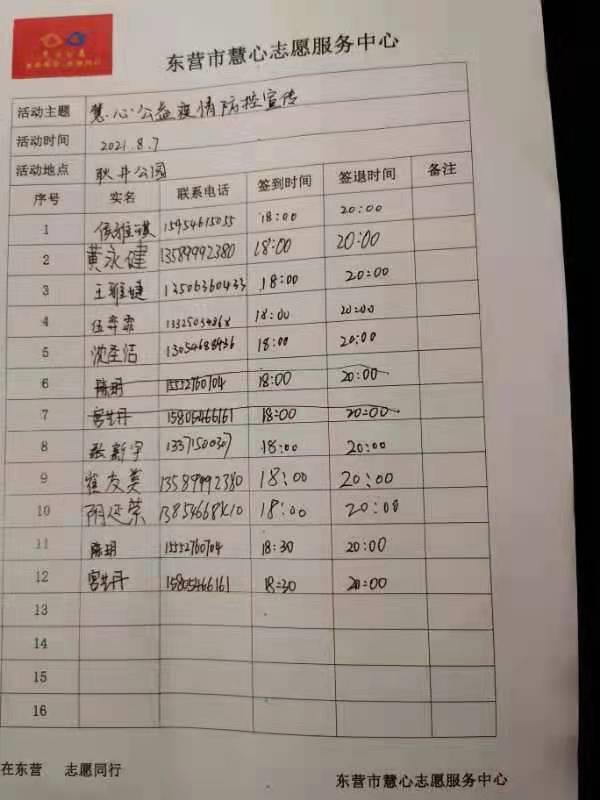 东营市慧心志愿服务中心
活动主题 慧心公益疫情防控宣传
活动时间 2021.8.7
活动地点 耿井公园
序号 实名 联系电话 签到时间 签退时间 备注
1 侯雅琪 15954615055 18:00 20:00
2 黄永健 13589992380 18:00 20:00
3 王雅婕 13506360433 18:00 20:00
4 18:00 20:00
5 沈圣洁 13054688936 18:00 20:00
6 陈玥 15552760704 18:00 20:00
7 宫艺丹 15805466161 18:00 20:00
8 张新宇 13371500307 18:00 20:00
9 崔友美 13589992380 18:00 20:00
10 阴延荣 18:00 20:00
11 陈玥 15552760704 18:30 20:00
12 宫艺丹 15805466161 18:30 20:00
13
14
15
16
在东营 志愿同行
东营市慧心志愿服务中心